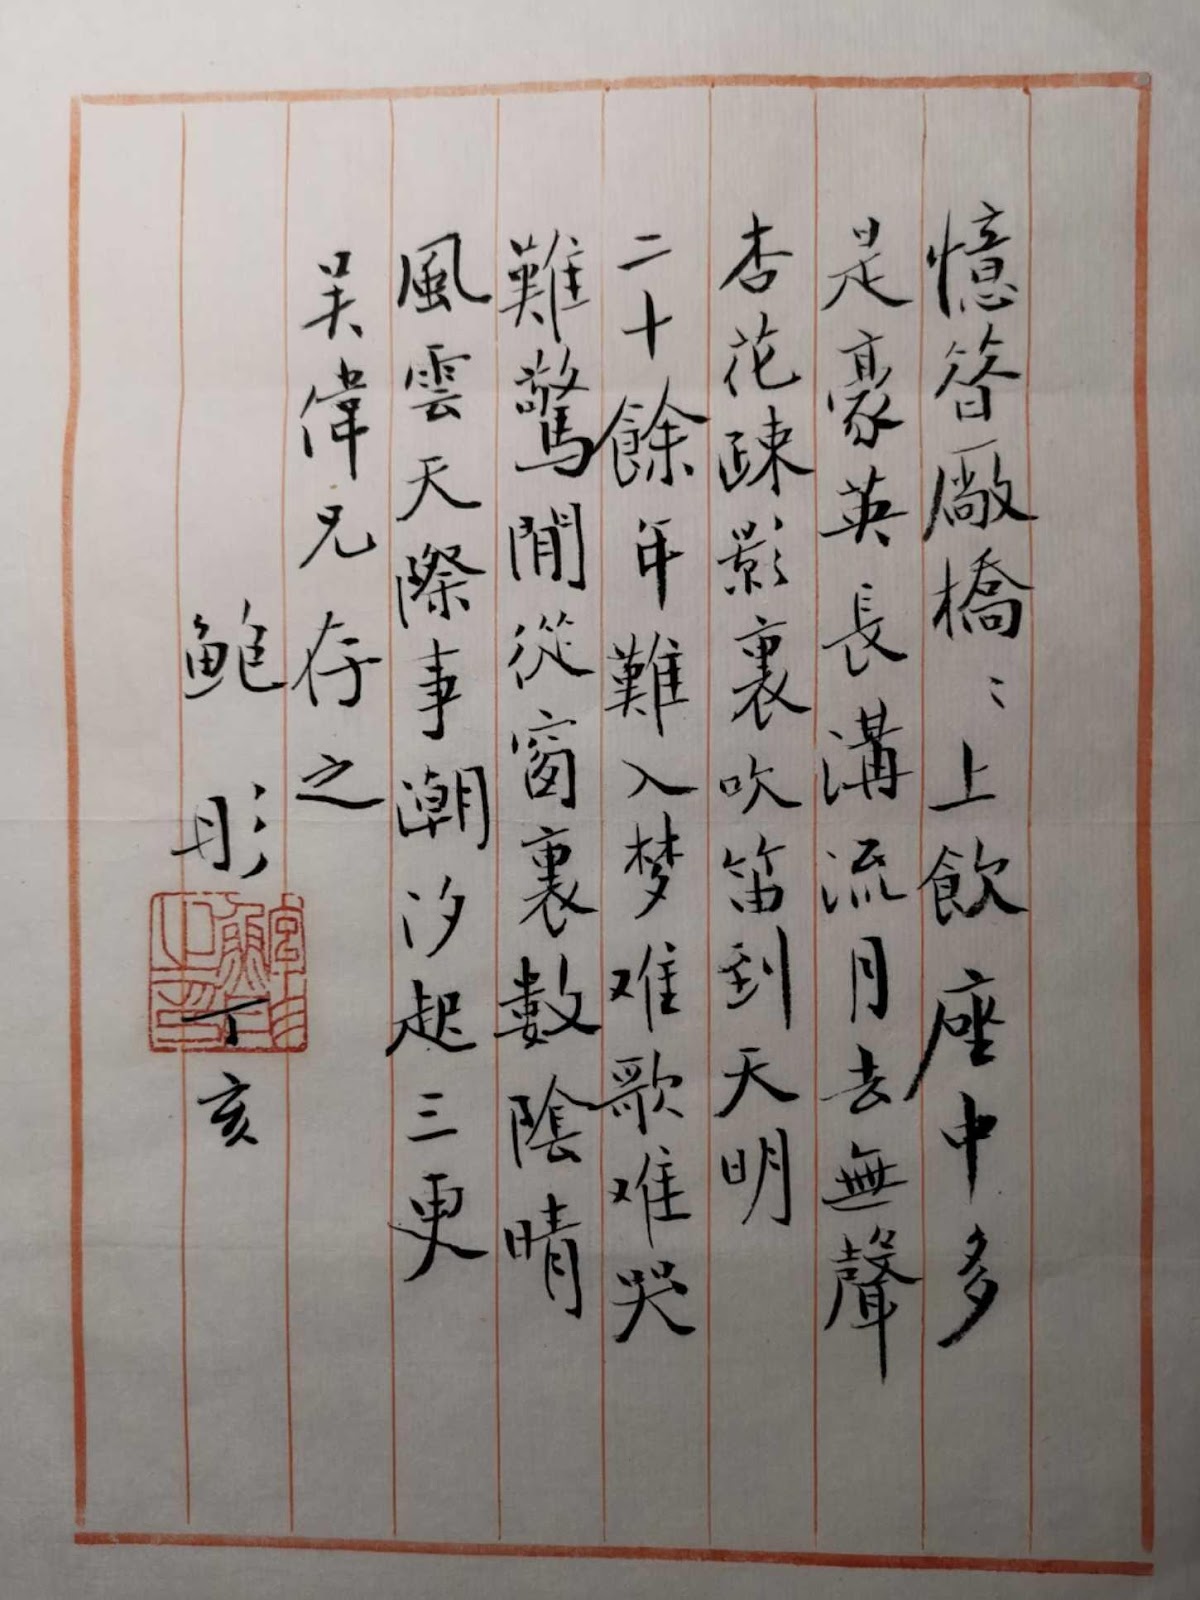 憶昝廠橋〻上飲座中多
是豪英長溝流月去無聲
杏花疎影裏吹笛到天明
二十餘年難入梦难歌难哭
難驚閒從窗裏數陰晴
風雲天際事潮汐起三更
吴偉兄存之
鲍彤丁亥